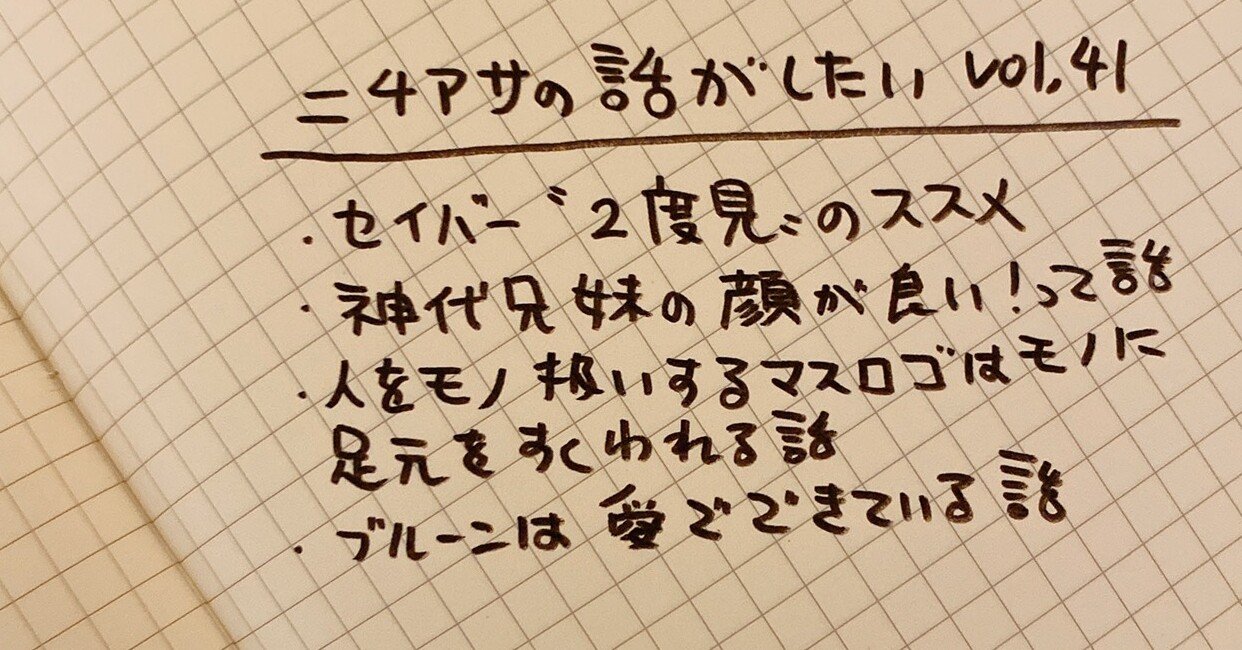 ニチアサの話がしたい vol.41
・セイバー〝2度見〟のススメ
・神代兄妹の顔が良い！って話
・人をモノ扱いするマスロゴはモノに
足元をすくわれる話
・ブルーンは愛でできている話